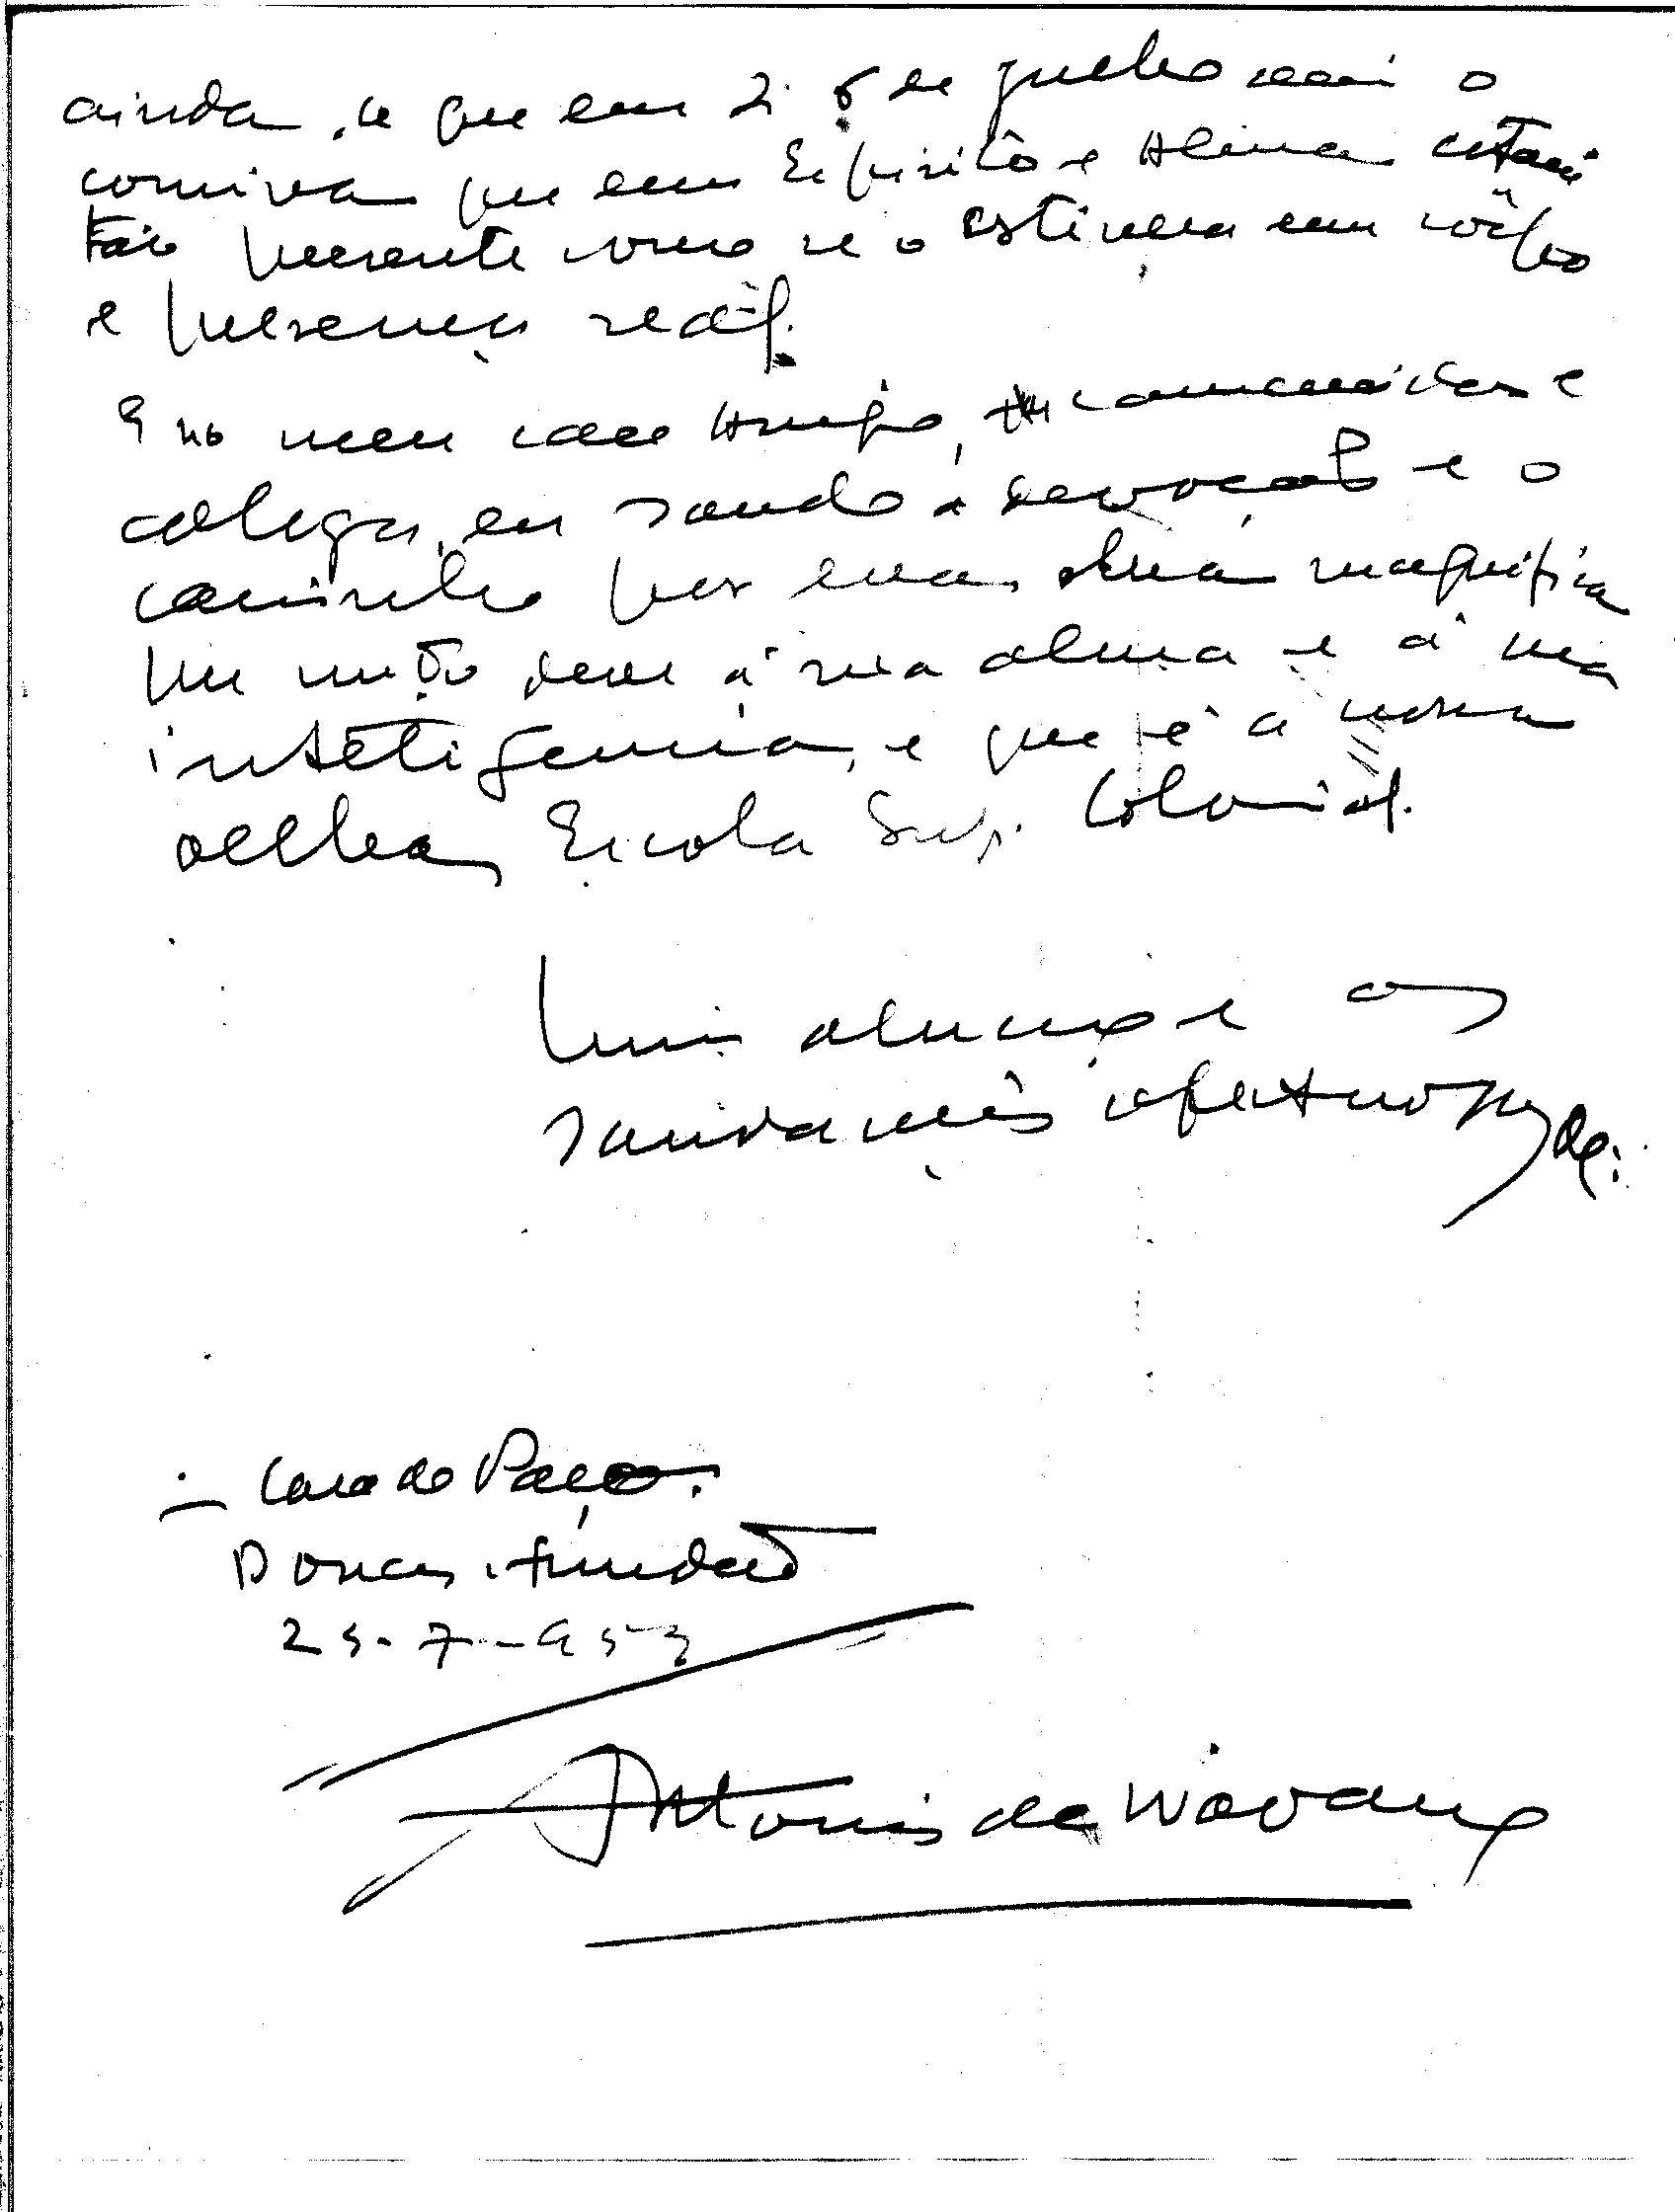 ainda, se que em 2 de julho sai o
conviva que em Espirito e Alma estará
tão presente como se o estivera em côrpo
e presença reál.
E no meu caro Amigo, camarada e
colega, eu saudo a devoção e o
carinho por essa obra magnifica
que muito deve á sua alma e á sua
inteligencia, e que é a nossa
velha Escola Sup. Colonial.
Luis abraço e as
saudações afectuosas de:
- Casa do Paço.
Donas, Fundão
25-7-953
Antonio de Navarro